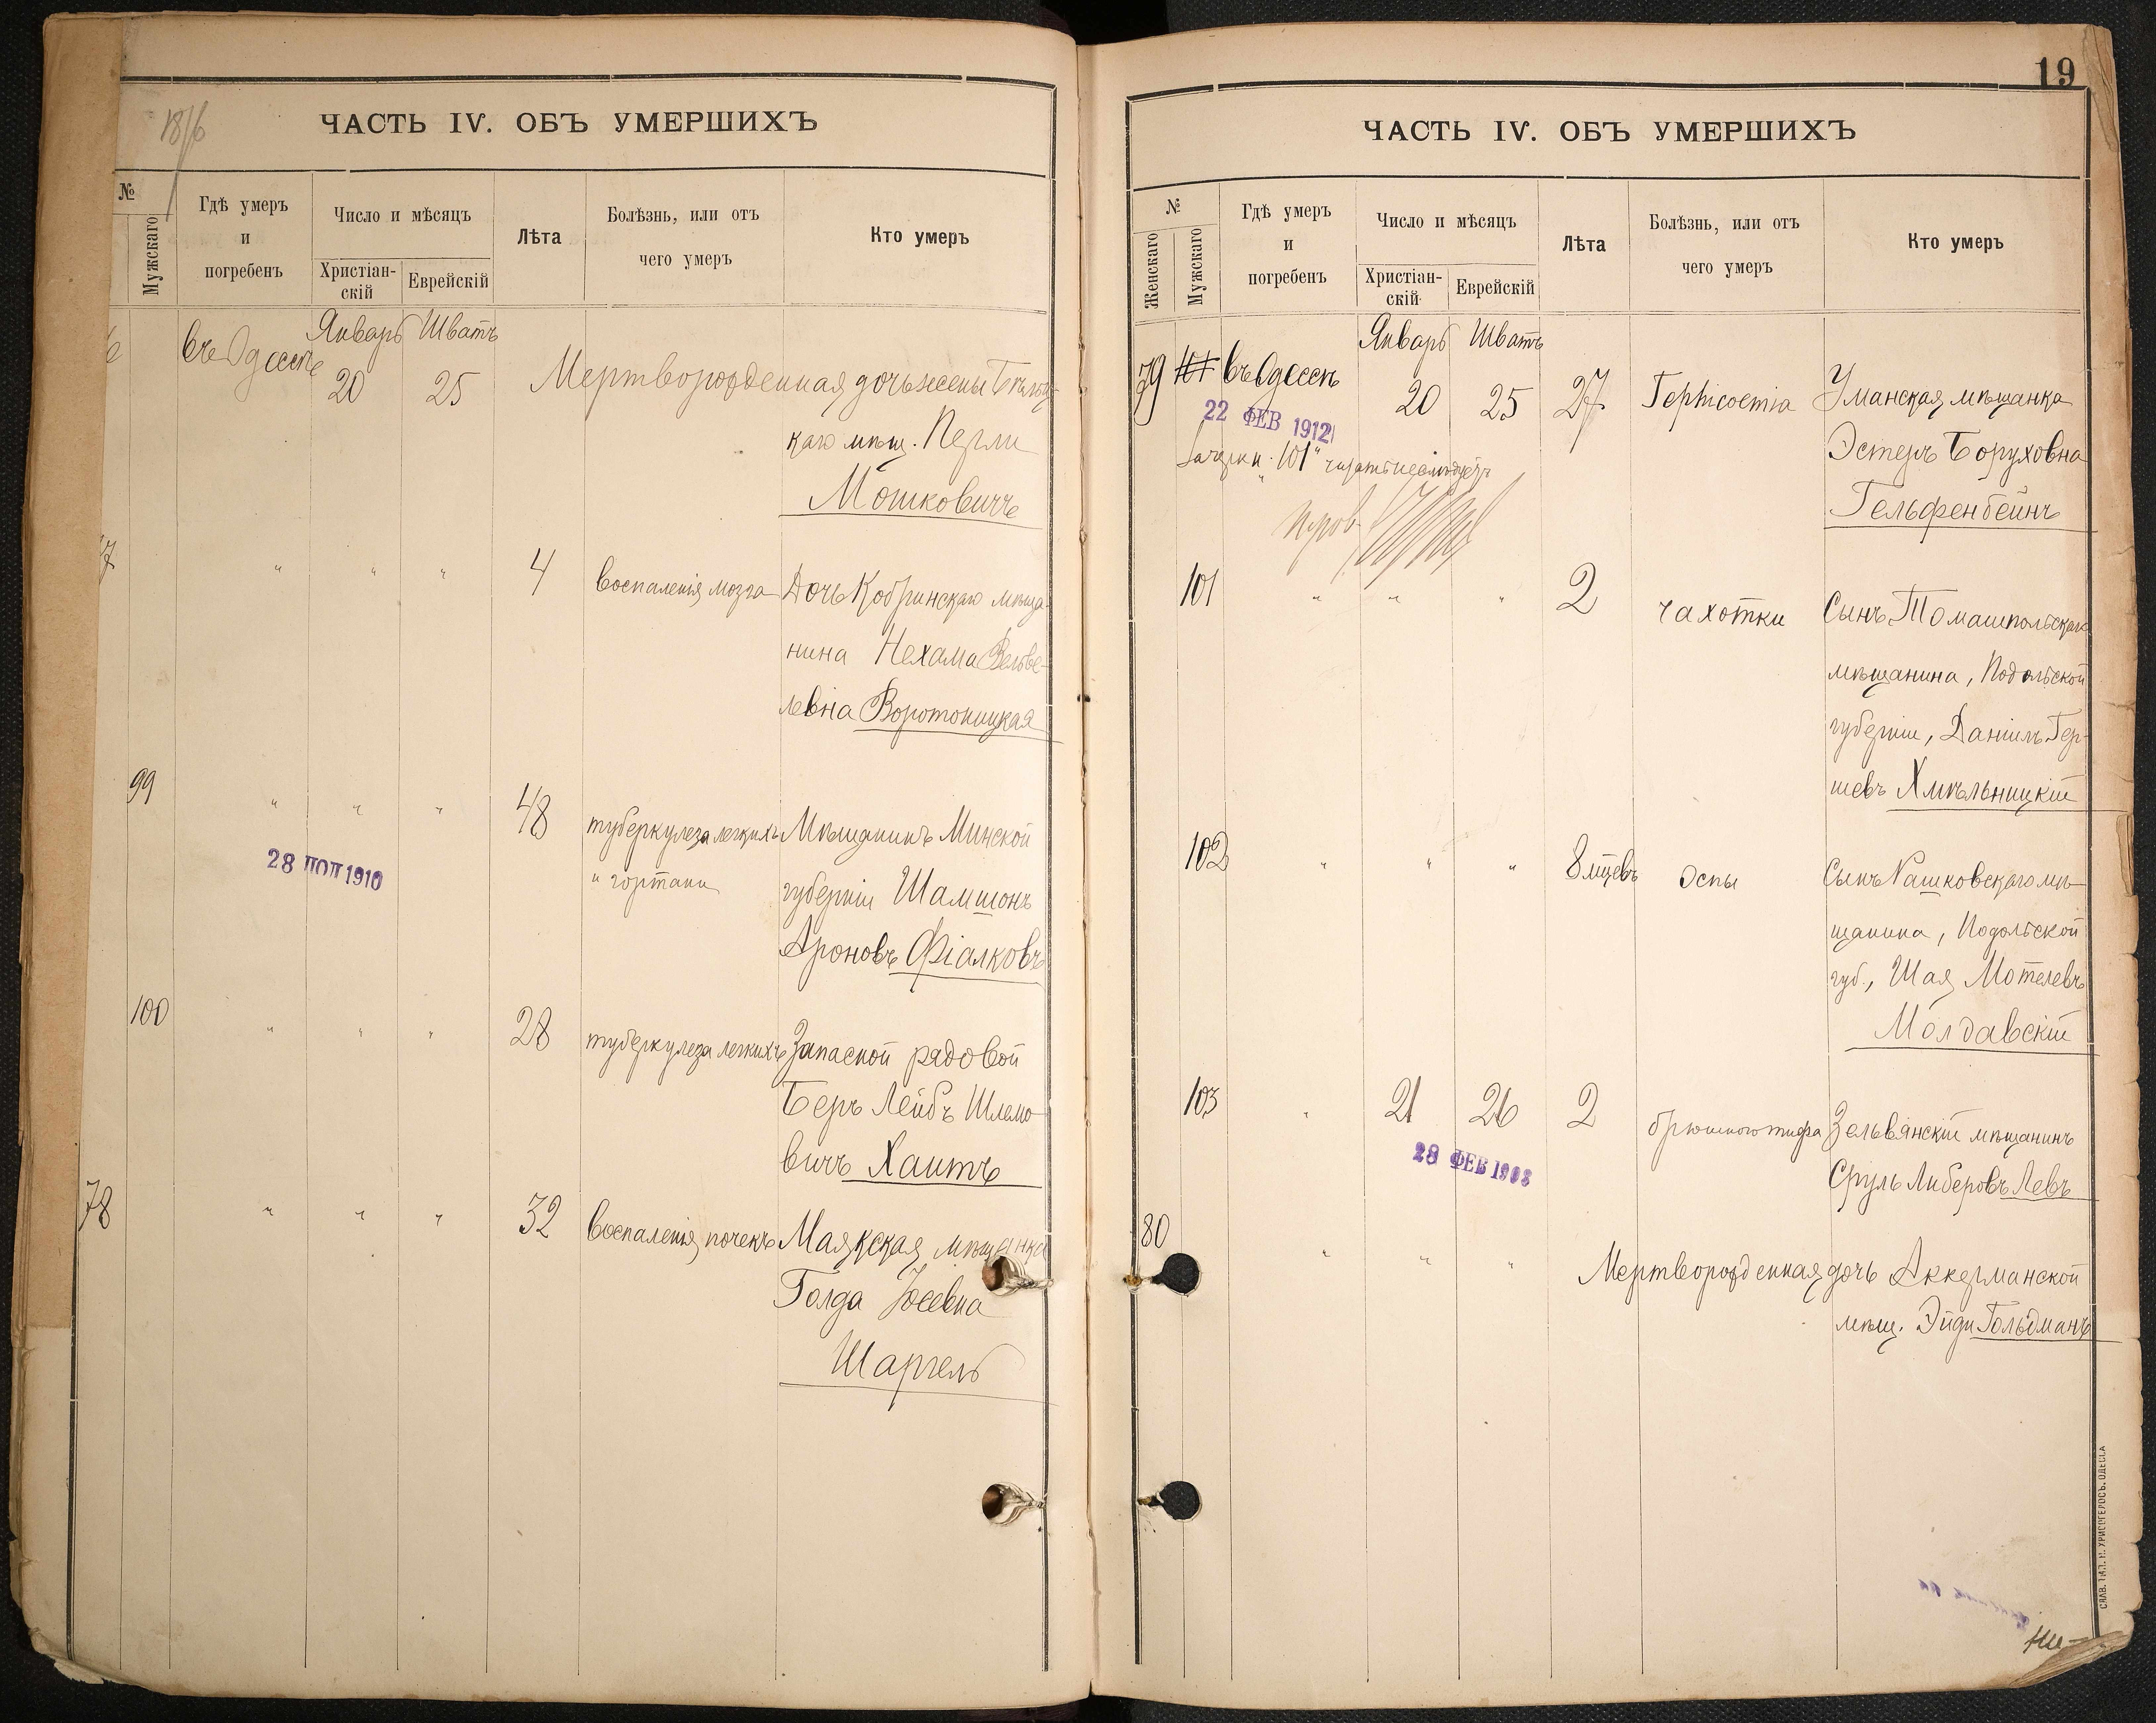 18/6
ЧАСТЬ IV. ОБЪ УМЕРШИХЪ
№
Мужскаго
Гдѣ умеръ
и
погребенъ
Число и мѣсяцъ
Христіан-
скій
Еврейскій
Лѣта
Болѣзнь, или отъ
чего умеръ
Кто умеръ
въ Одессѣ
Январь Шватъ
20 25
Мертворожденная дочь жены
каго мѣщ. Перли
Мошковичъ
7 " " " 4 воспаленія мозга Дочь Кобринскаго мѣща-
нина Нехама Вельве-
левна Воротоницкая
99 " " " 48 туберкулеза легкихъ Мѣщанинъ Минской
и гортани губерніи Шамшонъ
28 1910
Ароновъ Фіалковъ
100 " " " 28 туберкулеза легкихъ Запасной рядовой
Беръ Лейбъ Шлемо-
вичъ Хаитъ
78 " " " 32 воспаленія почекъ Маякская мѣщанка
Голда Іосевна
Шаргель
19
ЧАСТЬ IV. ОБЪ УМЕРШИХЪ
№
Женскаго
Мужскаго
Гдѣ умеръ
и
погребенъ
Число и мѣсяцъ
Христіан-
скій
Еврейскій
Лѣта
Болѣзнь, или отъ
чего умеръ
Кто умеръ
Январь Шватъ
79 въ Одессѣ 20 25 27 Уманская мѣщанка
22 ФЕВ 1912
Эстеръ Боруховна
Зачеркн. "101" читать не слѣдуетъ
Гельфенбейнъ
101 " " " 2 чахотки Сынъ Томашпольскаго
мѣщанина, Подольской
губерніи, Даніилъ Гер-
шевъ Хмѣльницкій
102 " " " 8 мцевъ оспы Сынъ Рашковскаго мѣ-
щанина, Подольской
губ., Шая Мотелевъ
Молдавскій
103 " 21 26 2 брюшного тифа Зельвянскій мѣщанинъ
28 ФЕВ
Сруль Либеровъ Левъ
80
" " " Мертворожденная дочь Аккерманской
мѣщ. Эйди Гольдманъ
СЛАВ. ТИП. Н. ХРИСОГЕЛОСЪ. ОДЕССА